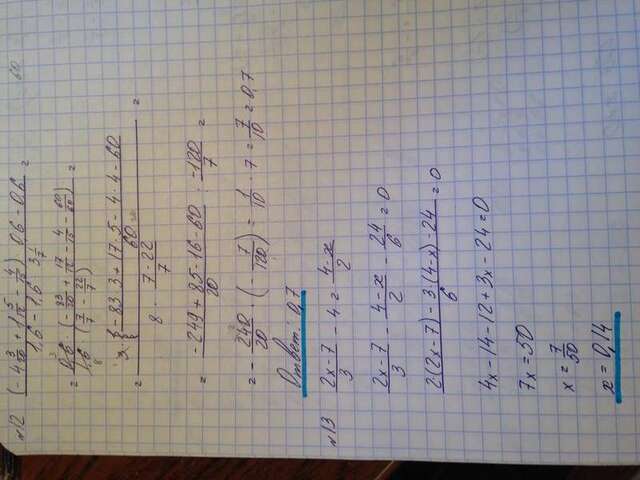 №12 ((-4 3/20 + 1 5/12 - 4/15) · 0,6 - 0,6) / (1,6 - 1,6 · 3 1/7) =
= (0,6 · (-83/20 + 17/12 - 4/15 - 60/60)) / (1,6 · (7/7 - 22/7)) =
= (3 · (-83·3 + 17·5 - 4·4 - 60)/60) / (8 · (7-22)/7) =
= (-249 + 85 - 16 - 60)/20 · -120/7 =
= - 240/20 · (- 7/120) = 1/10 · 7 = 7/10 = 0,7
Ответ: 0,7
№13 (2x-7)/3 - 4 = (4-x)/2
(2x-7)/3 - (4-x)/2 - 24/6 = 0
(2·(2x-7) - 3·(4-x) - 24)/6 = 0
4x - 14 - 12 + 3x - 24 = 0
7x = 50
x = 7/50
x = 0,14